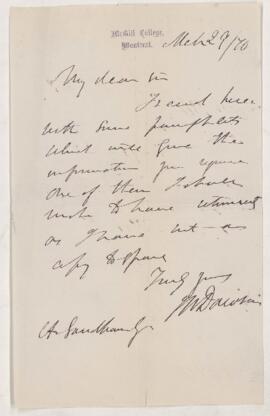 McGill College,
Montreal.
Mch 29/70
My dear sir
I send here
with some pamphlets
which will give the
information you require
One of them I should
wish to have returned
as I have not a
copy to spare
Truly yours
JWDawson
A Sandham Esq.